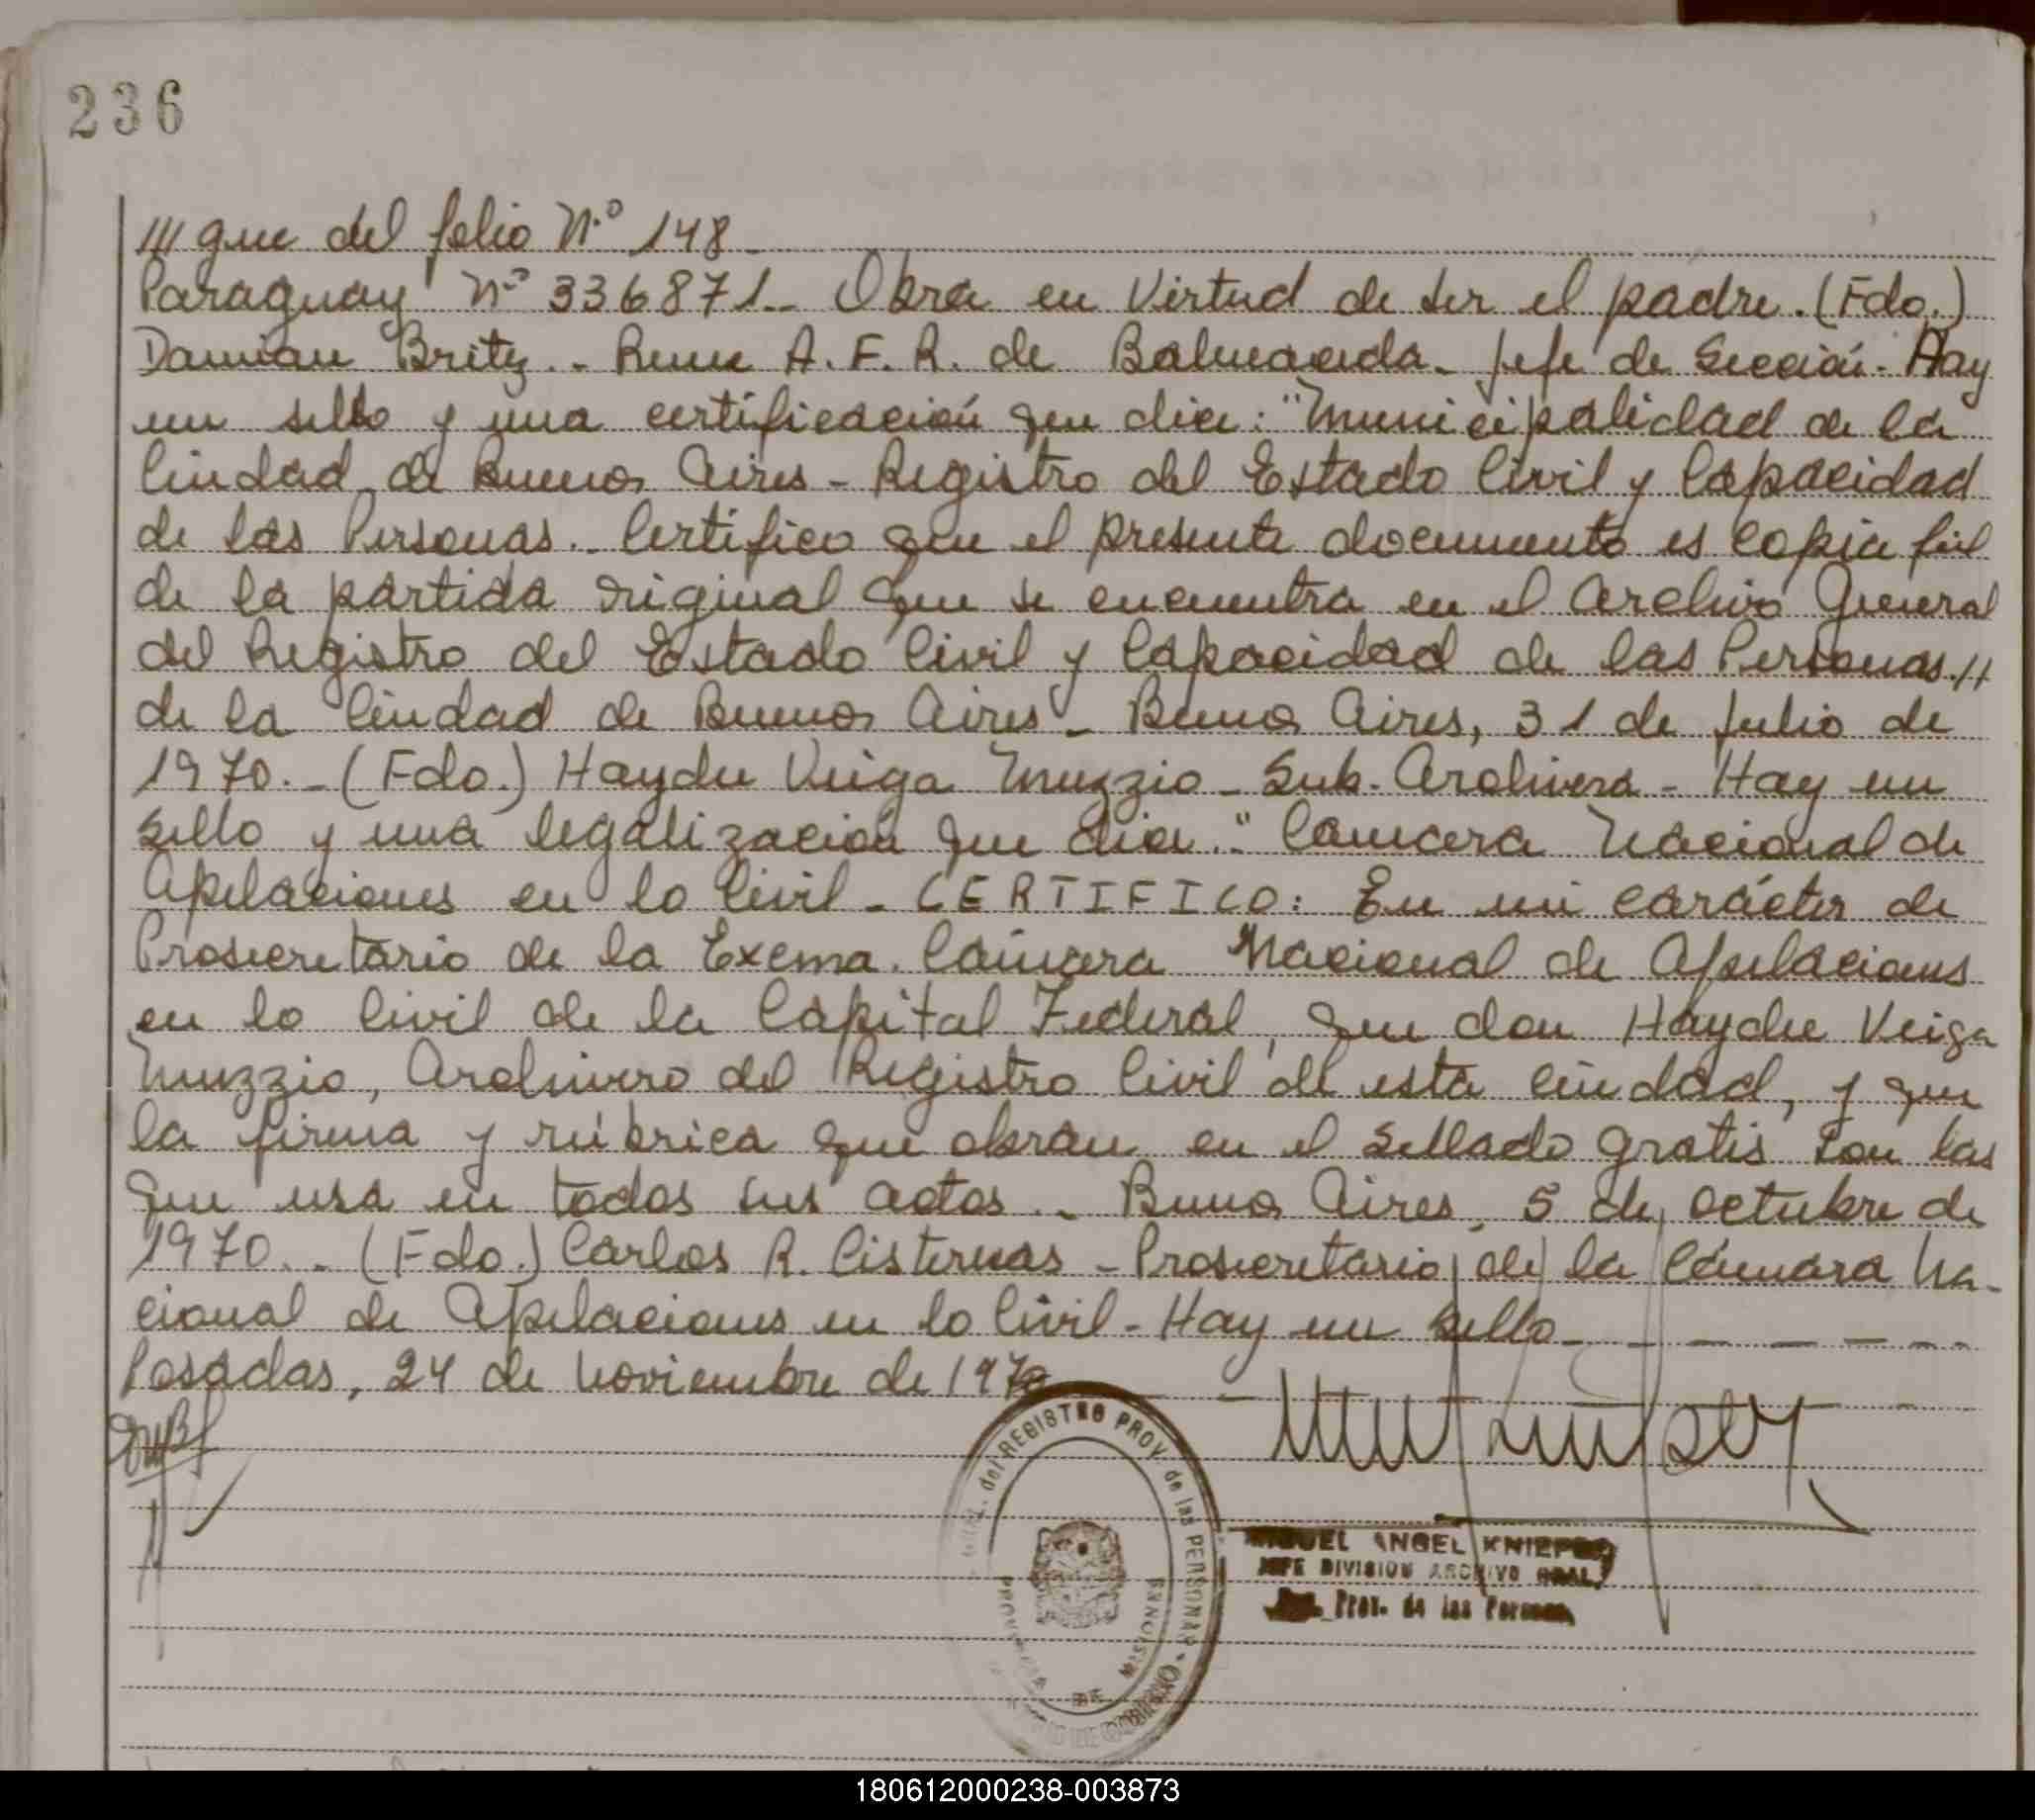 236
/// gue del folio Nº 148
Paraguay Nº 336871.- Obra en Virtud de ser el padre. (Fdo.)
Damian Britez.- Rene A. F. R. de Balmaceda - Jefe de Sección - Hay
un sello y una certificación que dice: "Municipalidad de la
Ciudad de Buenos Aires - Registro del Estado Civil y Capacidad
de las Personas.- Certifico que el presente documento es copia fiel
de la partida original que se encuentra en el Archivo General
del Registro del Estado Civil y Capacidad de las Personas.//
de la Ciudad de Buenos Aires - Buenos Aires, 31 de Julio de
1970.- (Fdo.) Haydee Veiga Muzzio - Sub-Archivera - Hay un
sello y una legalización que dice: "Camara Nacional de
Apelaciones en lo Civil - CERTIFICO: En mi carácter de
Prosecretario de la Excma. Cámara Nacional de Apelaciones
en lo Civil de la Capital Federal, que don Haydee Veiga
Muzzio, Archivero del Registro Civil de esta ciudad, y que
la firma y rúbrica que obran en el sellado gratis son las
que usa en todos sus actos.- Buenos Aires, 5 de octubre de
1970.- (Fdo.) Carlos R. Cisternas - Prosecretario de la Cámara Na-
cional de Apelaciones en lo Civil - Hay un sello
Posadas, 24 de Noviembre de 1970
del REGISTRO PROV. de las PERSONAS
MISIONES
MIGUEL ANGEL KNIEPER
JEFE DIVISION ARCHIVO GRAL.
Prov. de las Personas
180612000238-003873